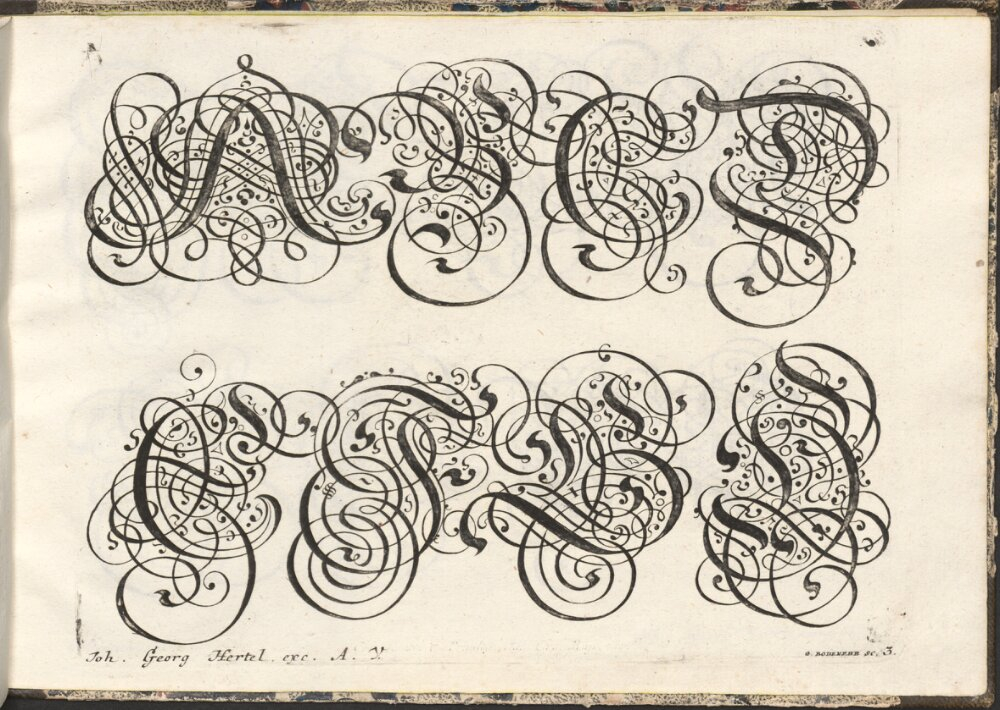 A B C D
E F G H
Joh. Georg Hertel. exc. A. V.
G. BODENEHR SC. 3.